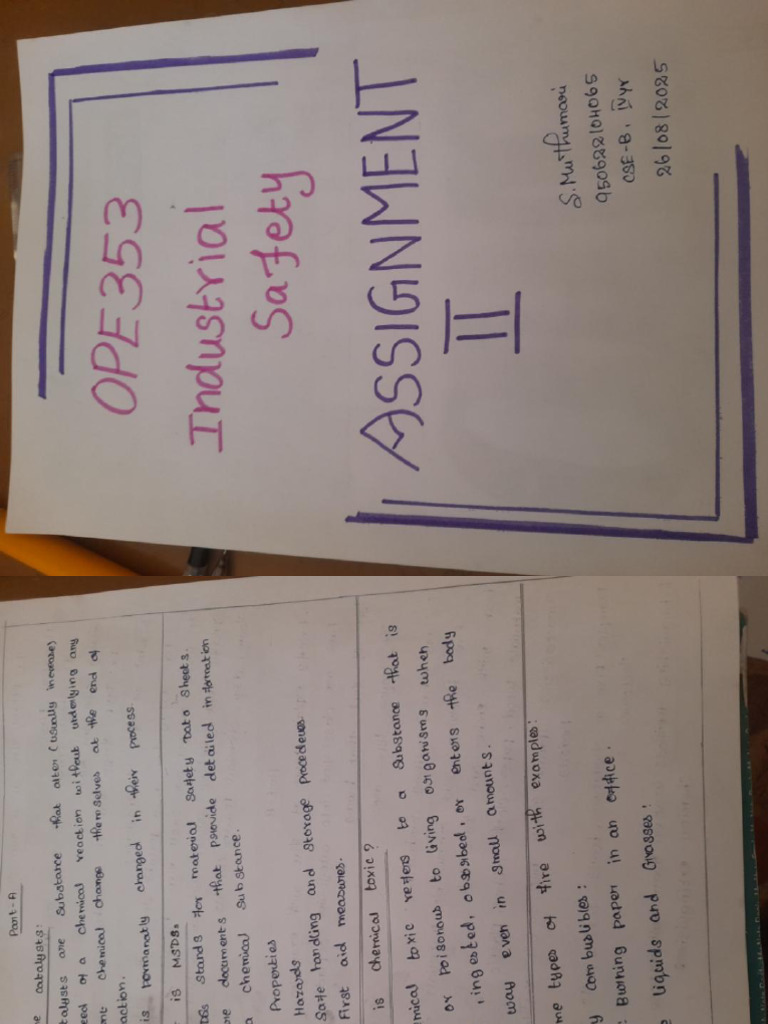 OPE353
Industrial
Safety
ASSIGNMENT
II
S. Muthumari
950622104065
CSE-B, IVyr
26/08/2025
Part-A
catalysts:
substance that alter (usually increase)
of a chemical reaction without underlying any
chemical change themselves at the end of
is permanatly changed in their process.
is MSDS.
stands for material safety data sheets.
documents that provide detailed information
a chemical substance.
Properties
Hazards
Safe handling and storage procedures.
First aid measures.
is chemical toxic?
toxic refers to a substance that is
or poisonous to living organisms when
, ingested, absorbed, or enters the body
way even in small amounts.
types of fire with examples:
combustibles:
: Burning paper in an office.
liquids and Grasses: